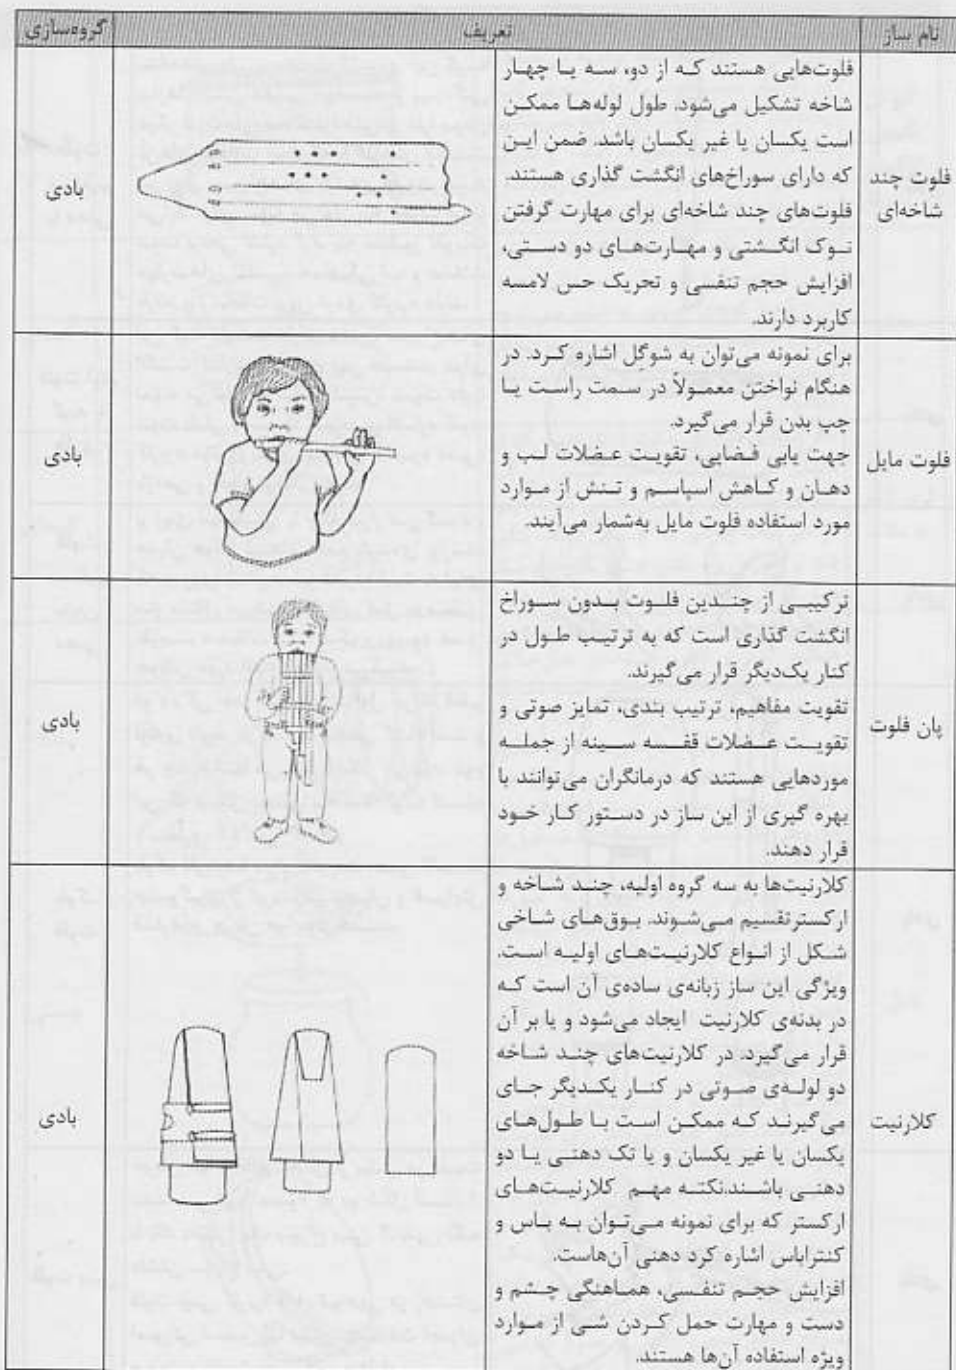 نام ساز	تعریف	گروه‌سازی
فلوت چند شاخه‌ای
فلوت‌هایی هستند که از دو، سه یا چهار
شاخه تشکیل می‌شود. طول لوله‌ها ممکن
است یکسان یا غیر یکسان باشد. ضمن این
که دارای سوراخ‌های انگشت گذاری هستند.
فلوت‌های چند شاخه‌ای برای مهارت گرفتن
نوک انگشتی و مهارت‌های دو دستی،
افزایش حجم تنفسی و تحریک حس لامسه
کاربرد دارند.
بادی
فلوت مایل
برای نمونه می‌توان به شوگِل اشاره کرد. در
هنگام نواختن معمولاً در سمت راست یا
چپ بدن قرار می‌گیرد.
جهت یابی فضایی، تقویت عضلات لب و
دهان و کاهش اسپاسم و تنش از موارد
مورد استفاده فلوت مایل به‌شمار می‌آیند.
بادی
پان فلوت
ترکیبی از چندین فلوت بدون سوراخ
انگشت گذاری است که به ترتیب طول در
کنار یک‌دیگر قرار می‌گیرند.
تقویت مفاهیم، ترتیب بندی، تمایز صوتی و
تقویت عضلات قفسه سینه از جمله
موردهایی هستند که درمانگران می‌توانند با
بهره گیری از این ساز در دستور کار خود
قرار دهند.
بادی
کلارنیت
کلارنیت‌ها به سه گروه اولیه، چند شاخه و
ارکسترتقسیم می‌شوند. بوق‌های شاخی
شکل از انواع کلارنیت‌های اولیه است.
ویژگی این ساز زبانه‌ی ساده‌ی آن است که
در بدنه‌ی کلارنیت ایجاد می‌شود و یا بر آن
قرار می‌گیرد. در کلارنیت‌های چند شاخه
دو لوله‌ی صوتی در کنار یکدیگر جای
می‌گیرند که ممکن است با طول‌های
یکسان یا غیر یکسان و یا تک دهنی یا دو
دهنی باشند.نکته مهم کلارنیت‌های
ارکستر که برای نمونه می‌توان به باس و
کنتراباس اشاره کرد دهنی آن‌هاست.
افزایش حجم تنفسی، هماهنگی چشم و
دست و مهارت حمل کردن شی از موارد
ویژه استفاده آن‌ها هستند.
بادی